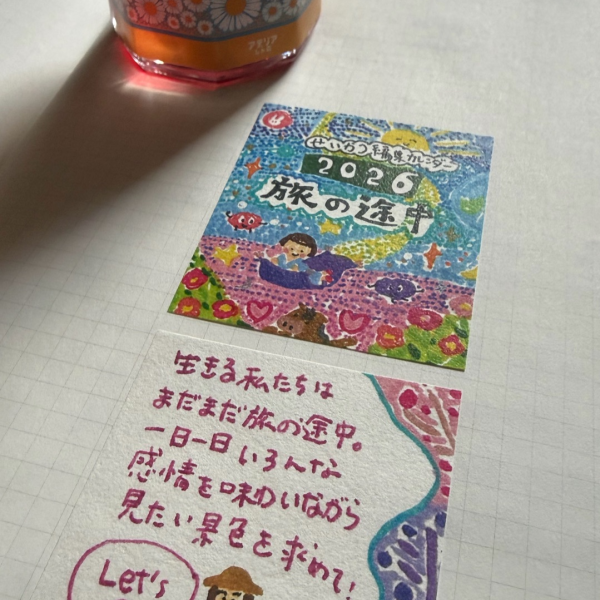 せいかつ編集カレンダー
2026
旅の途中
生きる私たちは
まだまだ旅の途中。
一日一日いろんな
感情を味わいながら
見たい景色を求めて!
Let's